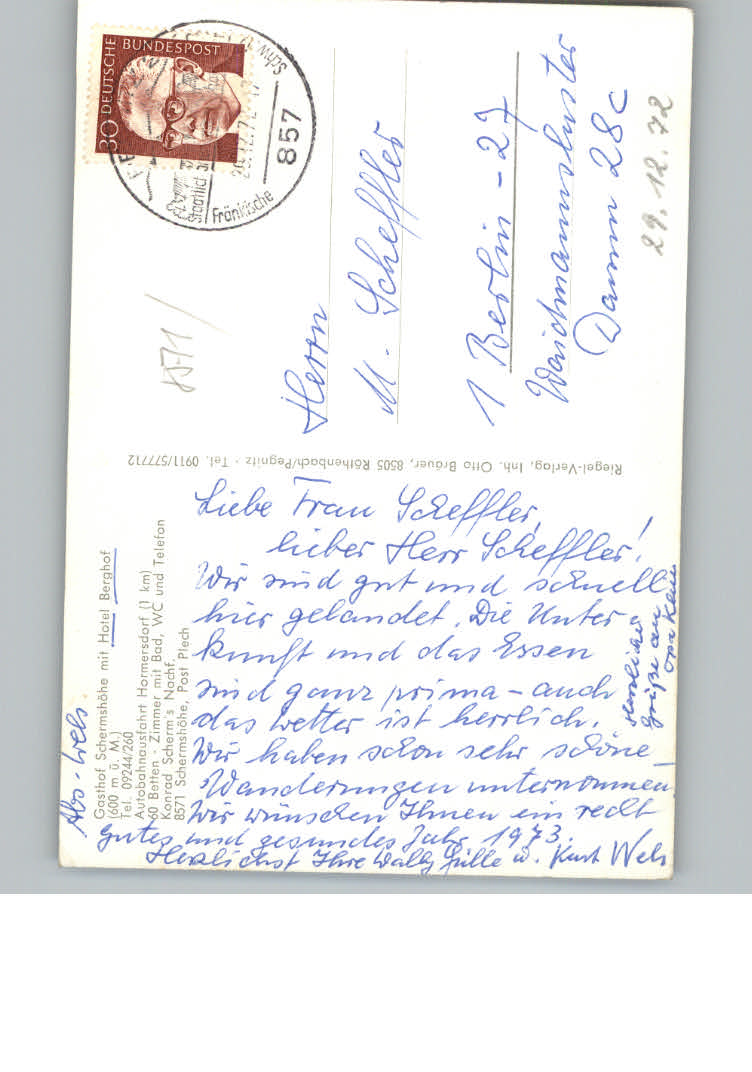 DEUTSCHE BUNDESPOST
30
857
Staatlich
Fränkische
8571
Herrn
M. Scheffler
1 Berlin-27
Damm 28c
29.12.72
Riegel-Verlag, Inh. Otto Bräuer, 8505 Röthenbach/Pegnitz · Tel. 0911/577712
Abs. Wels.
Gasthof Schermshöhe mit Hotel Berghof
(600 m ü. M.)
Tel. 09244/260
Autobahnausfahrt Hormersdorf (1 km)
60 Betten - Zimmer mit Bad, WC und Telefon
Konrad Scherm's Nachf.
8571 Schermshöhe, Post Plech
Liebe Frau Scheffler,
lieber Herr Scheffler!
Wir sind gut und schnell
hier gelandet. Die Unter
kunft und das Essen
sind ganz prima - auch
das Wetter ist herrlich.
Wir haben schon sehr schöne
Wanderungen unternommen.
Wir wünschen Ihnen ein recht
gutes und gesundes Jahr 1973.
Herzlichst Ihre Wally Gülle u. Kurt Wels
Herzliche
Grüße an